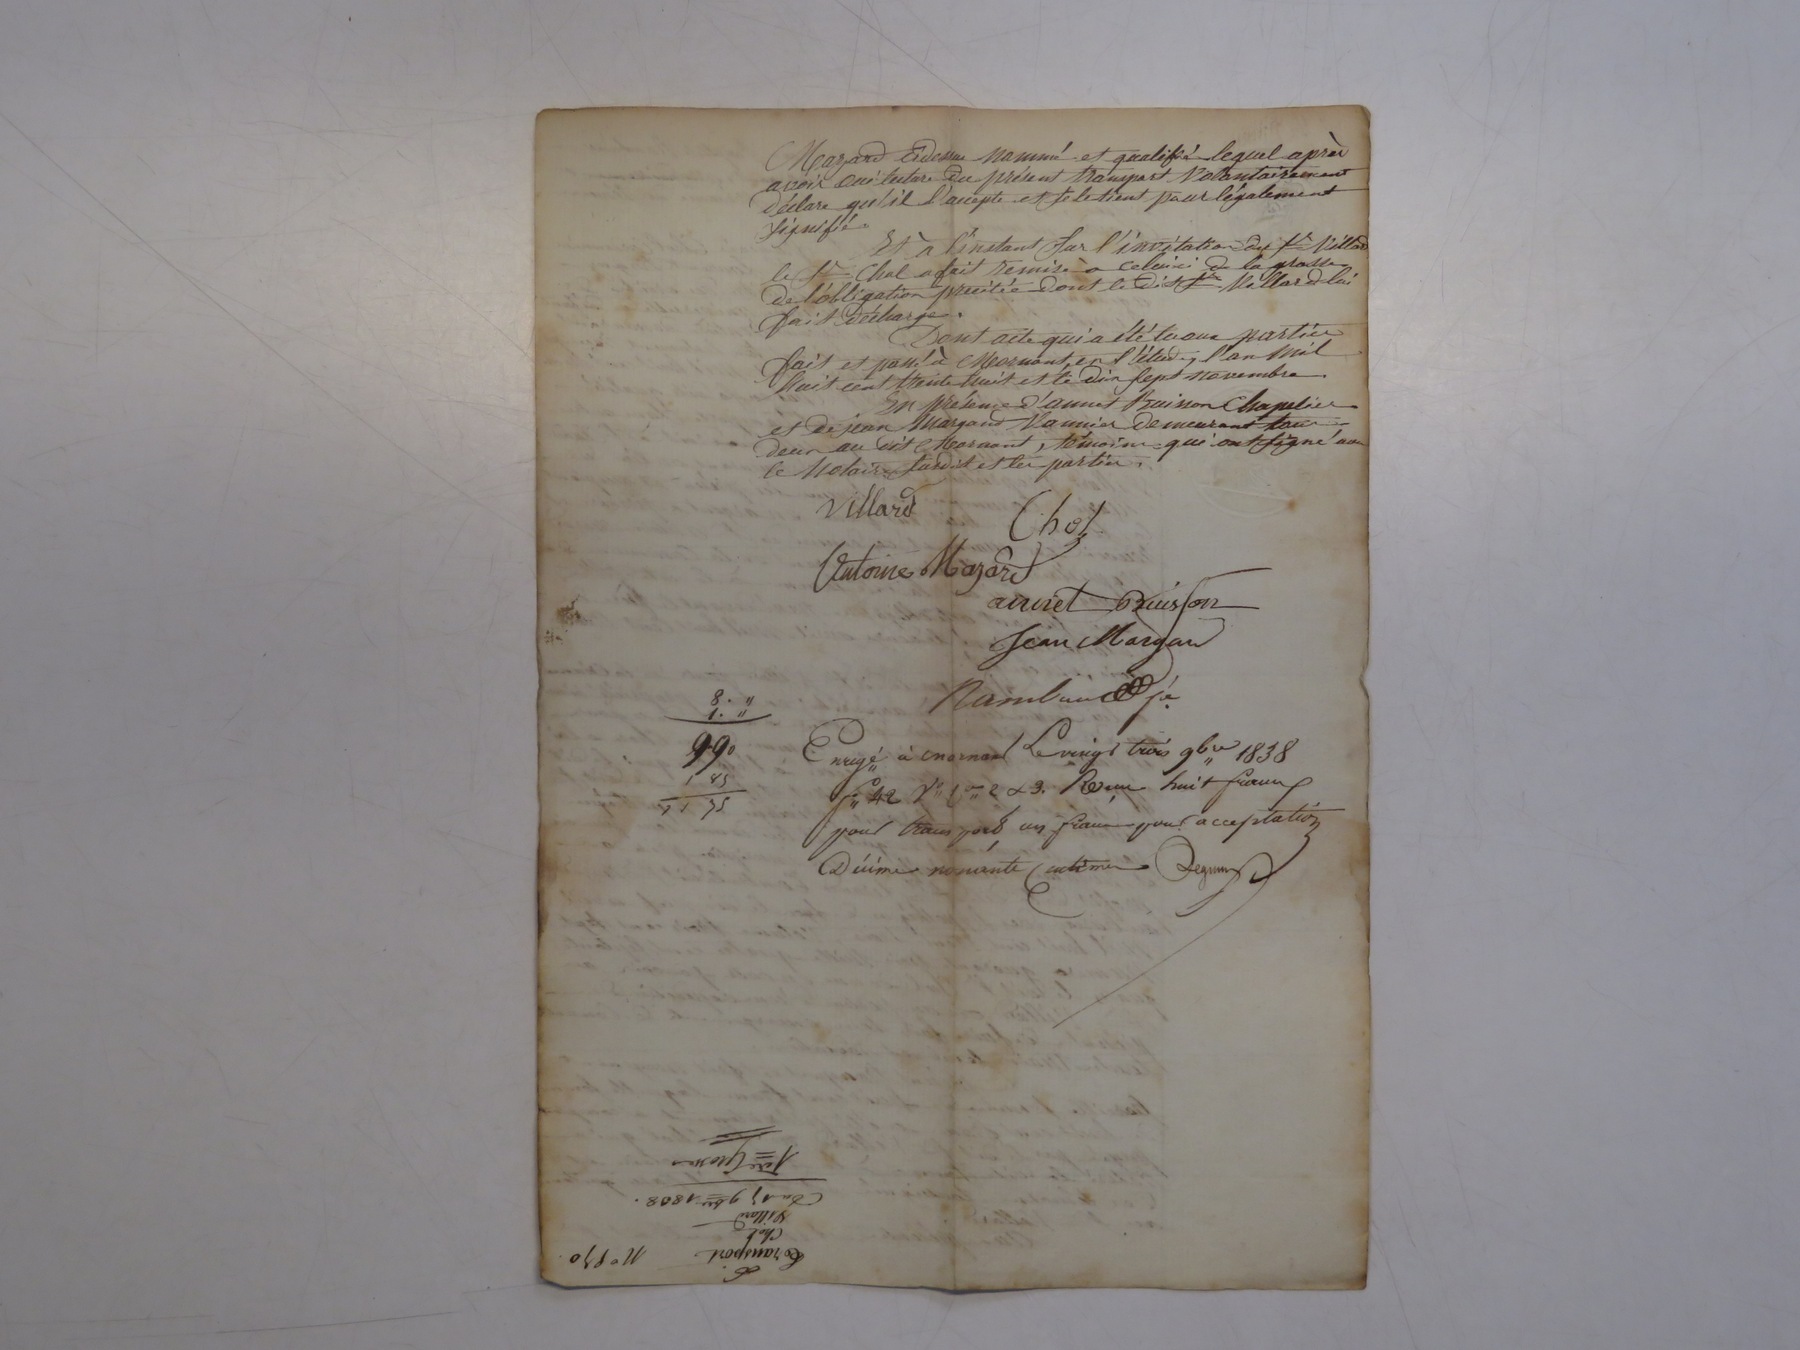 Mazard cidessus nommé et qualifié lequel après
avoir oui lecture du présent transport volontairement
déclare qu'il l'accepte et se le tient pour légalement
signifié.
Et à l'instant sur l'invitation du Sr Villard
le Sr Chol a fait remise à celuici de la grosse
de l'obligation précitée dont le dit Sr Villard lui
fait décharge.
Dont acte qui a été lu aux parties
fait et passé à Mornant, en l'étude, l'an mil
huit cent trente huit et le dix sept novembre.
En présence d'annet Buisson Chapelier
et de jean Margand Vannier demeurant tous
deux au dit Mornant, témoins qui ont signé avec
le Notaire susdit et les parties.
Villard
Chol
Antoine Mazard
annet Buisson
Jean Margan
8. "
1. "
990
1 85
11 75
Enregé à mornant Le vingt trois 9bre 1838
fo 42 Vo Ces 2 & 3. Reçu huit francs
pour transport, un franc pour acceptation
Décime nonante centimes
No 850.
Transport
Chol
Villard
Du 17 9bre 1838.
1ere Grosse